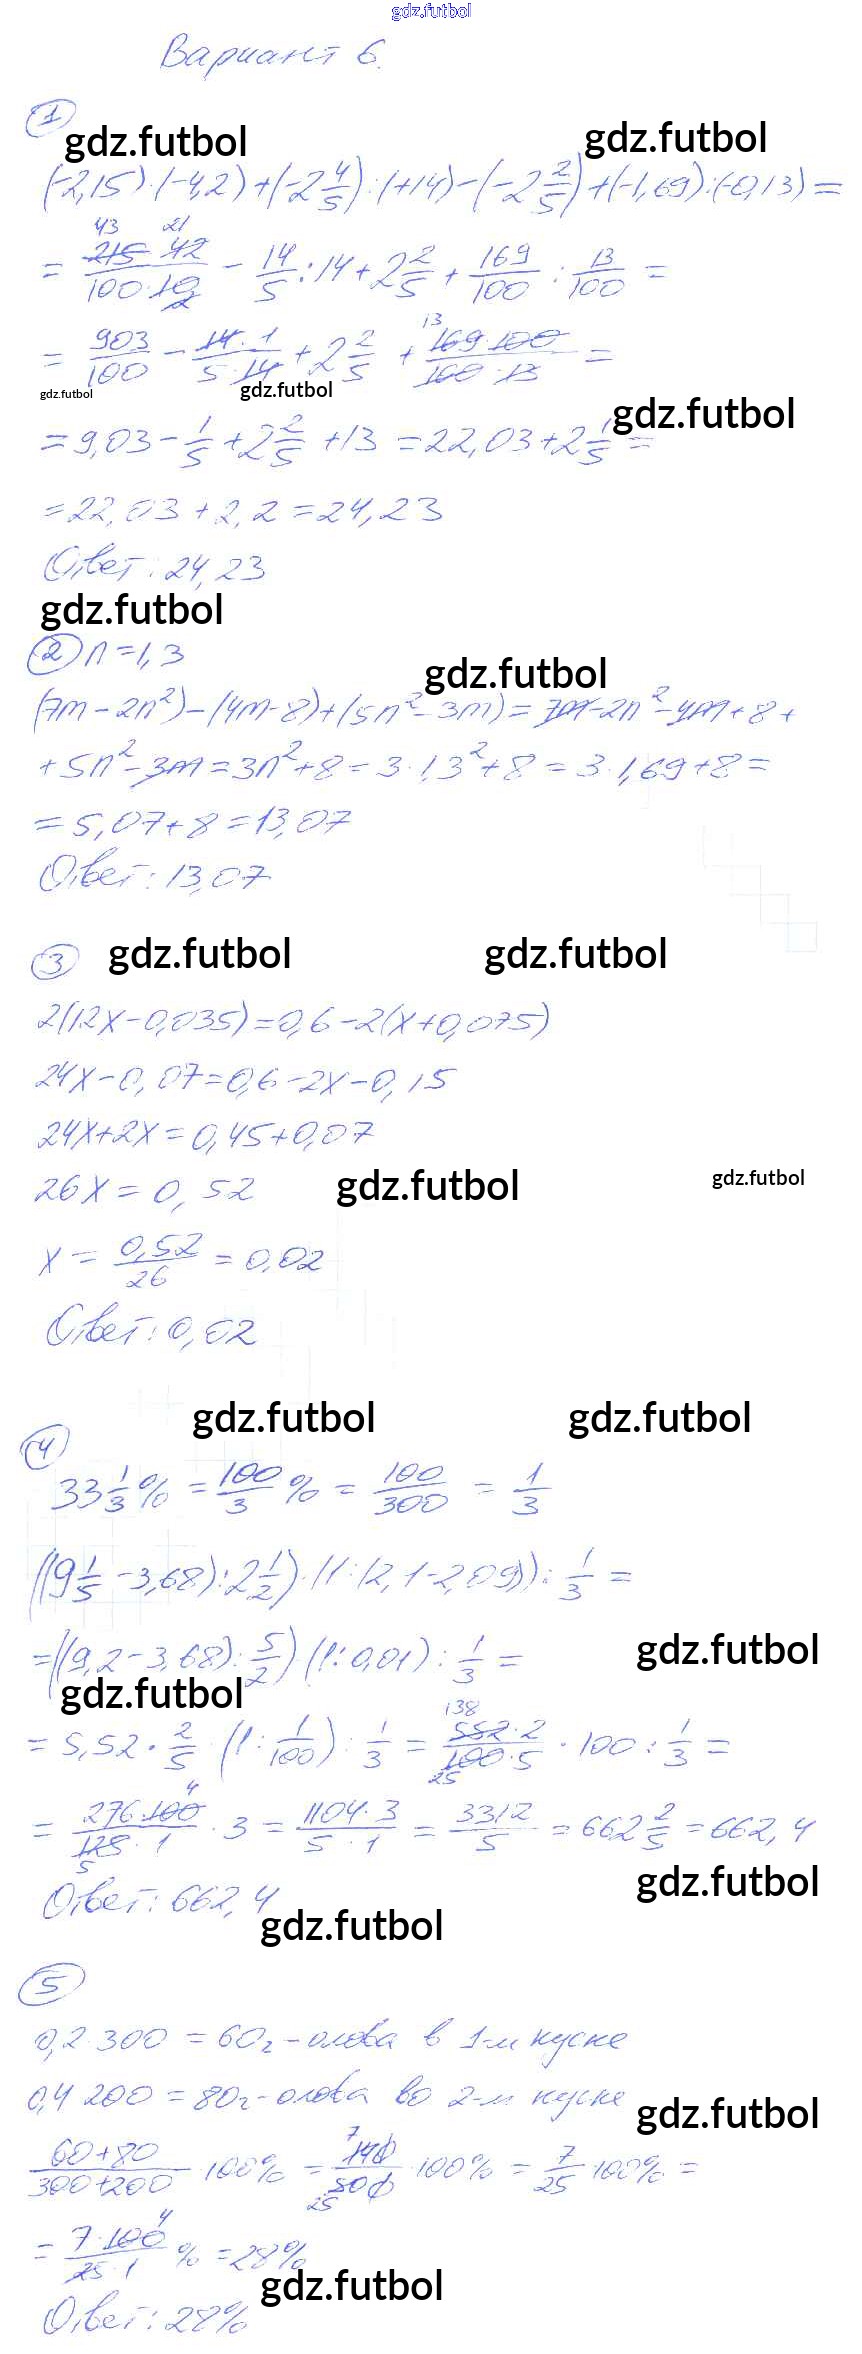 gdz.futbol
Вариант 6.
1
gdz.futbol gdz.futbol
(-2,15)·(-4,2)+(-2 4/5):(+14)-(-2 2/5)+(-1,69):(-0,13)=
43 21
= 215·42/100·10 2 - 14/5:14+2 2/5+169/100:13/100=
13
= 903/100 - 14·1/5·14 + 2 2/5 + 169·100/100·13 =
gdz.futbol gdz.futbol gdz.futbol
=9,03-1/5+2 2/5+13=22,03+2 1/5=
=22,03+2,2=24,23
Ответ: 24,23
gdz.futbol
2 n=1,3
gdz.futbol
(7m-2n²)-(4m-8)+(5n²-3m)=7m-2n²-4m+8+
+5n²-3m=3n²+8=3·1,3²+8=3·1,69+8=
=5,07+8=13,07
Ответ: 13,07
3 gdz.futbol gdz.futbol
2(12x-0,035)=0,6-2(x+0,075)
24x-0,07=0,6-2x-0,15
24x+2x=0,45+0,07
26x=0,52
gdz.futbol gdz.futbol
x=0,52/26=0,02
Ответ: 0,02
gdz.futbol gdz.futbol
4
33 1/3%=100/3%=100/300=1/3
((9 1/5-3,68):2 1/2)·(1:(2,1-2,09)):1/3=
=((9,2-3,68):5/2)·(1:0,01):1/3=
gdz.futbol gdz.futbol
138
=5,52·2/5·(1:1/100):1/3=552·2/100·5 25·100:1/3=
4
=276·100/125·1 5·3=1104·3/5·1=3312/5=662 2/5=662,4
gdz.futbol
Ответ: 662,4
gdz.futbol
5
0,2·300=60г-олова в 1-м куске
0,4·200=80г-олова во 2-м куске
gdz.futbol
60+80/300+200·100%=7 140/500 25·100%=7/25·100%=
4
=7·100/25·1%=28%
gdz.futbol
Ответ: 28%